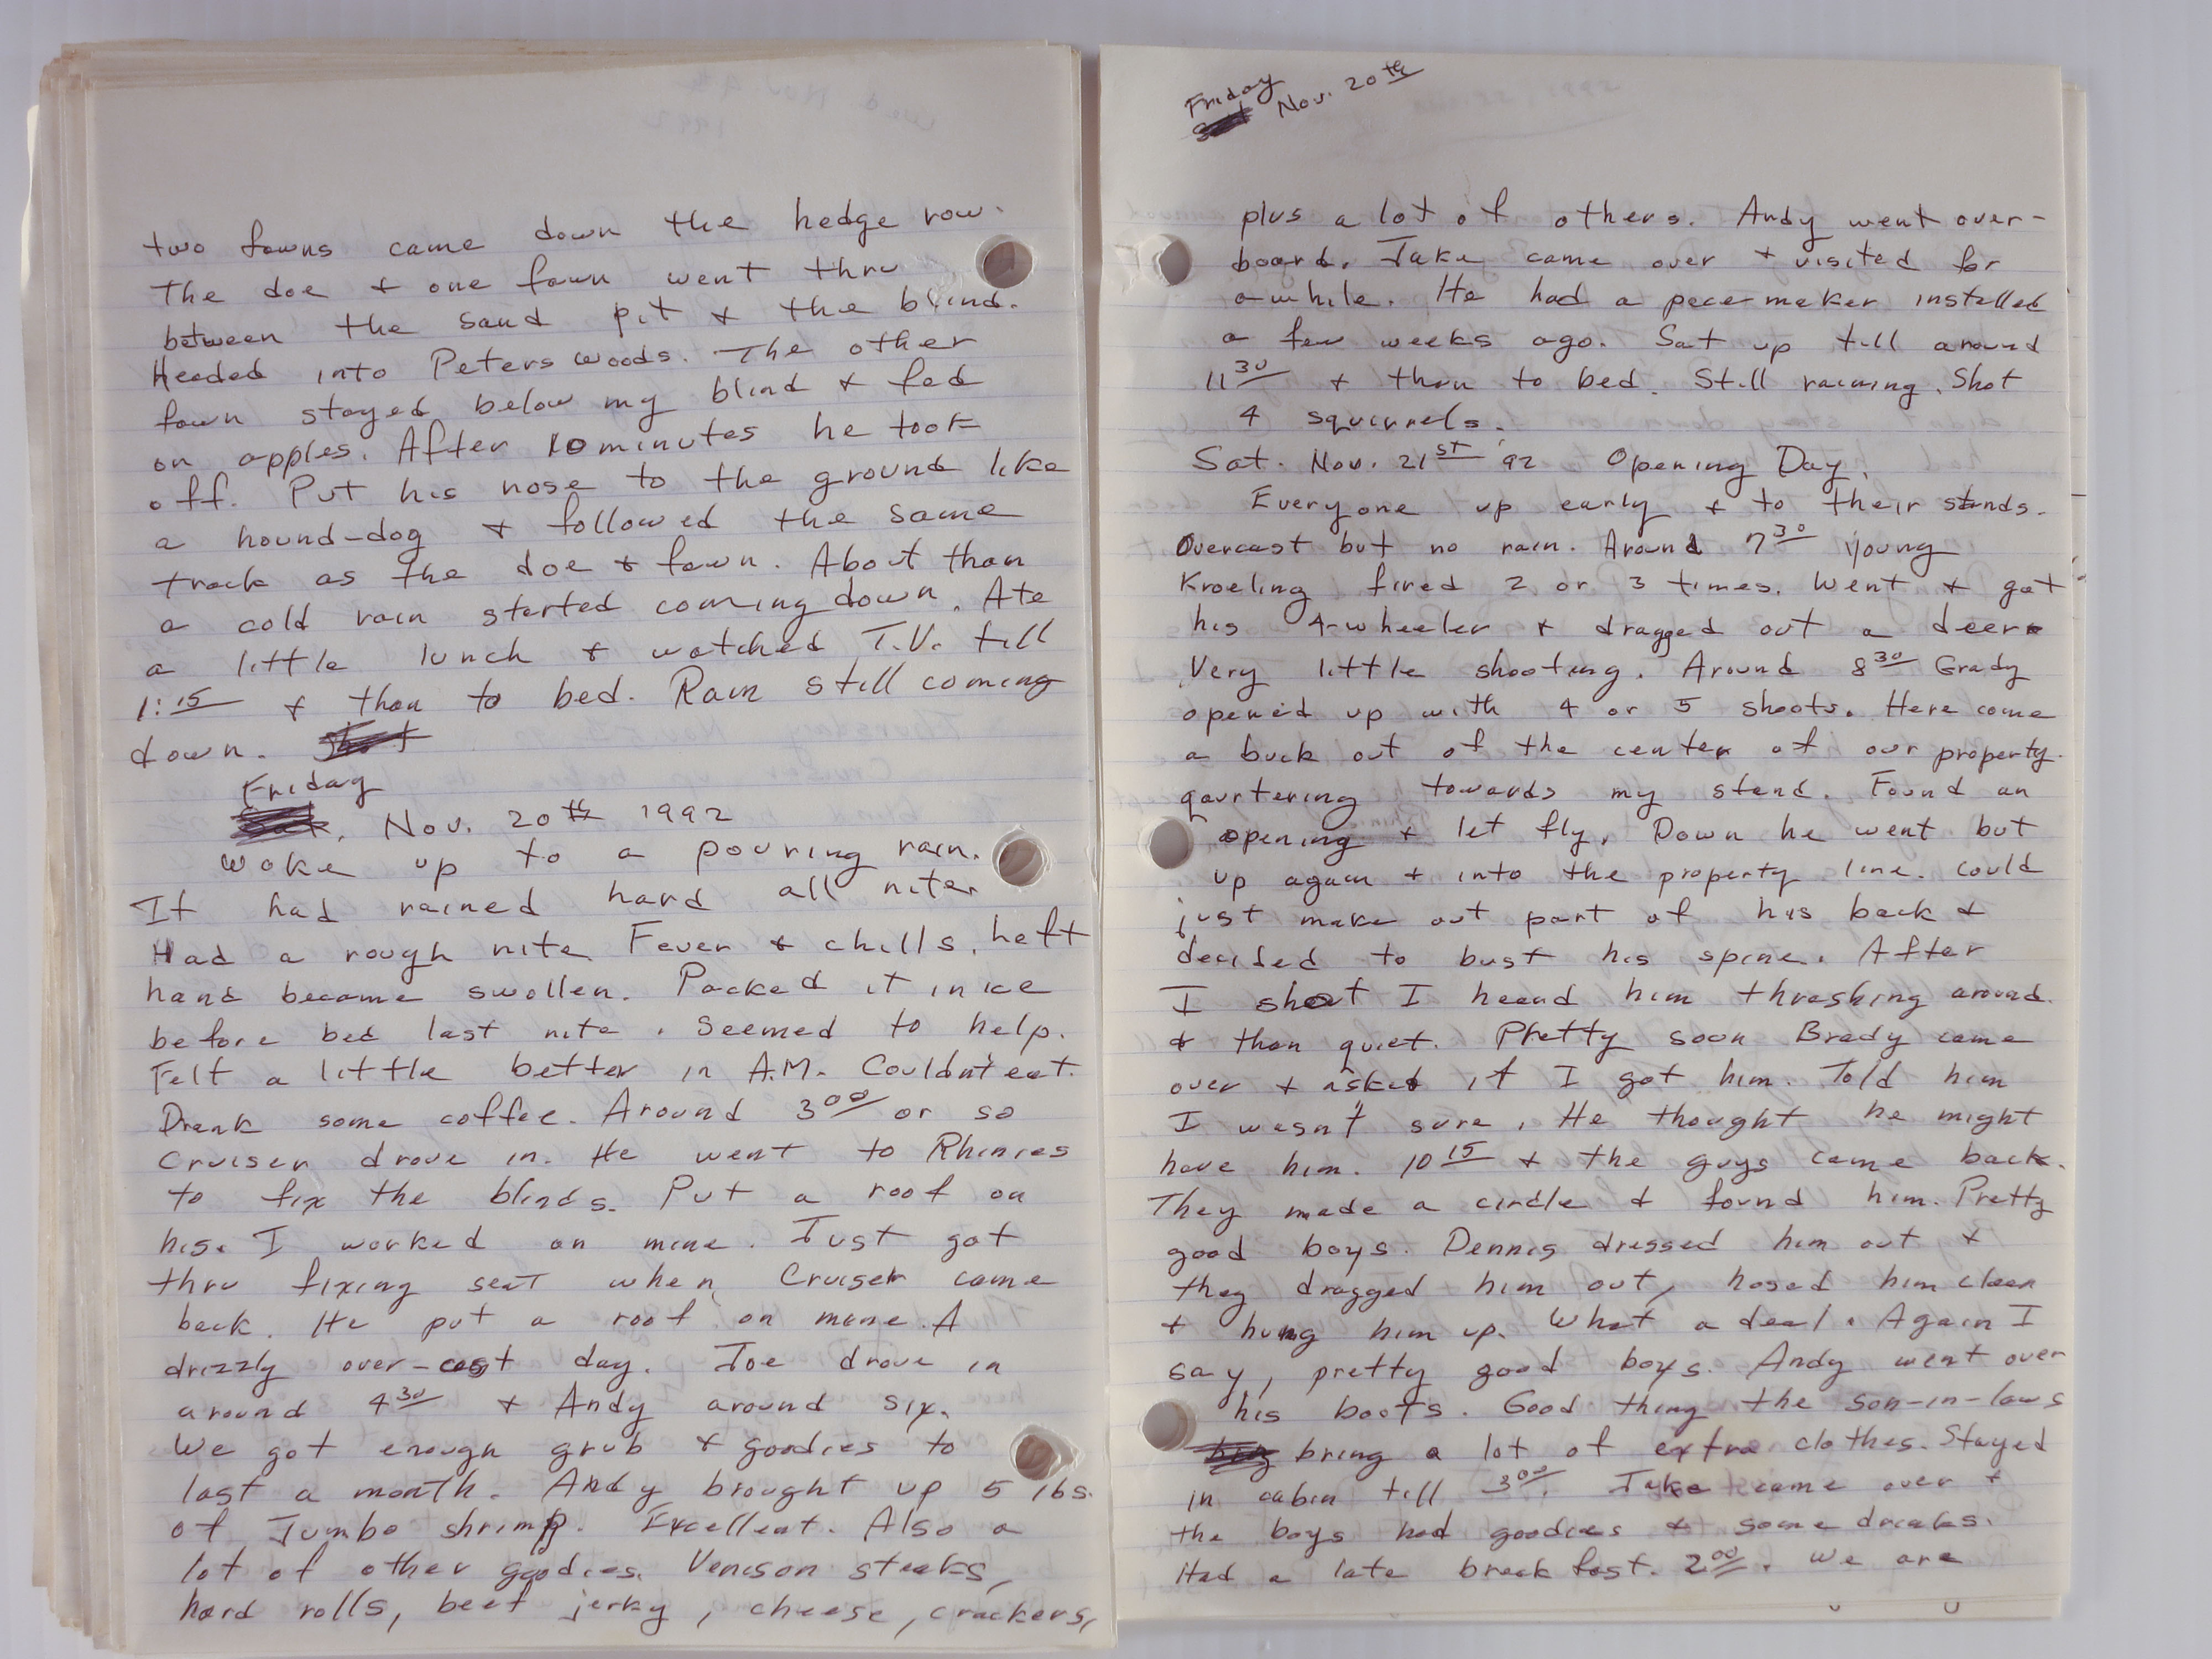 two fawns came down the hedge row.
The doe + one fawn went thru
between the sand pit + the blind.
Headed into Peters woods. The other
fawn stayed below my blind + fed
on apples. After 10 minutes he took
off. Put his nose to the ground like
a hound-dog + followed the same
track as the doe + fawn. About than
a cold rain started coming down. Ate
a little lunch + watched T.V. till
1:15 + than to bed. Rain still coming
down.
Friday
Nov. 20th 1992
Woke up to a pouring rain.
It had rained hard all nite.
Had a rough nite. Fever + chills. Left
hand became swollen. Packed it in ice
before bed last nite. Seemed to help.
Felt a little better in A.M. Couldn't eat.
Drank some coffee. Around 300 or so
Cruiser drove in. He went to Rhinies
to fix the blinds. Put a roof on
his. I worked on mine. Just got
thru fixing seat when Cruiser came
back. He put a roof on mine. A
drizzly over-cast day. Joe drove in
around 430 + Andy around six.
We got enough grub + goodies to
last a month. Andy brought up 5 lbs.
of Jumbo shrimp. Excellent. Also a
lot of other goodies. Venison steaks,
hard rolls, beef jerky, cheese, crackers,
Friday
Nov. 20th
plus a lot of others. Andy went over-
board. Jake came over + visited for
a while. He had a pace-maker installed
a few weeks ago. Sat up till around
1130 + than to bed. Still raining. Shot
4 squirrels.
Sat. Nov. 21st '92 Opening Day.
Everyone up early + to their stands.
Overcast but no rain. Around 730 young
Kroeling fired 2 or 3 times. Went + got
his 4-wheeler + dragged out a deer.
Very little shooting. Around 830 Grady
opened up with 4 or 5 shoots. Here come
a buck out of the center of our property.
qaurtering towards my stand. Found an
opening + let fly. Down he went but
up again + into the property line. Could
just make out part of his back +
decided to bust his spine. After
I shot I heard him thrashing around.
+ than quiet. Pretty soon Brady came
over + asked if I got him. Told him
I wasn't sure. He thought he might
have him. 1015 + the guys came back.
They made a circle + found him. Pretty
good boys. Dennis dressed him out +
they dragged him out, hosed him clean
+ hung him up. What a deal. Again I
say, pretty good boys. Andy went over
his boots. Good thing the son-in-laws
bring a lot of extra clothes. Stayed
in cabin till 300. Jake came over +
the boys had goodies + some drinks.
Had a late breakfast. 200. We are